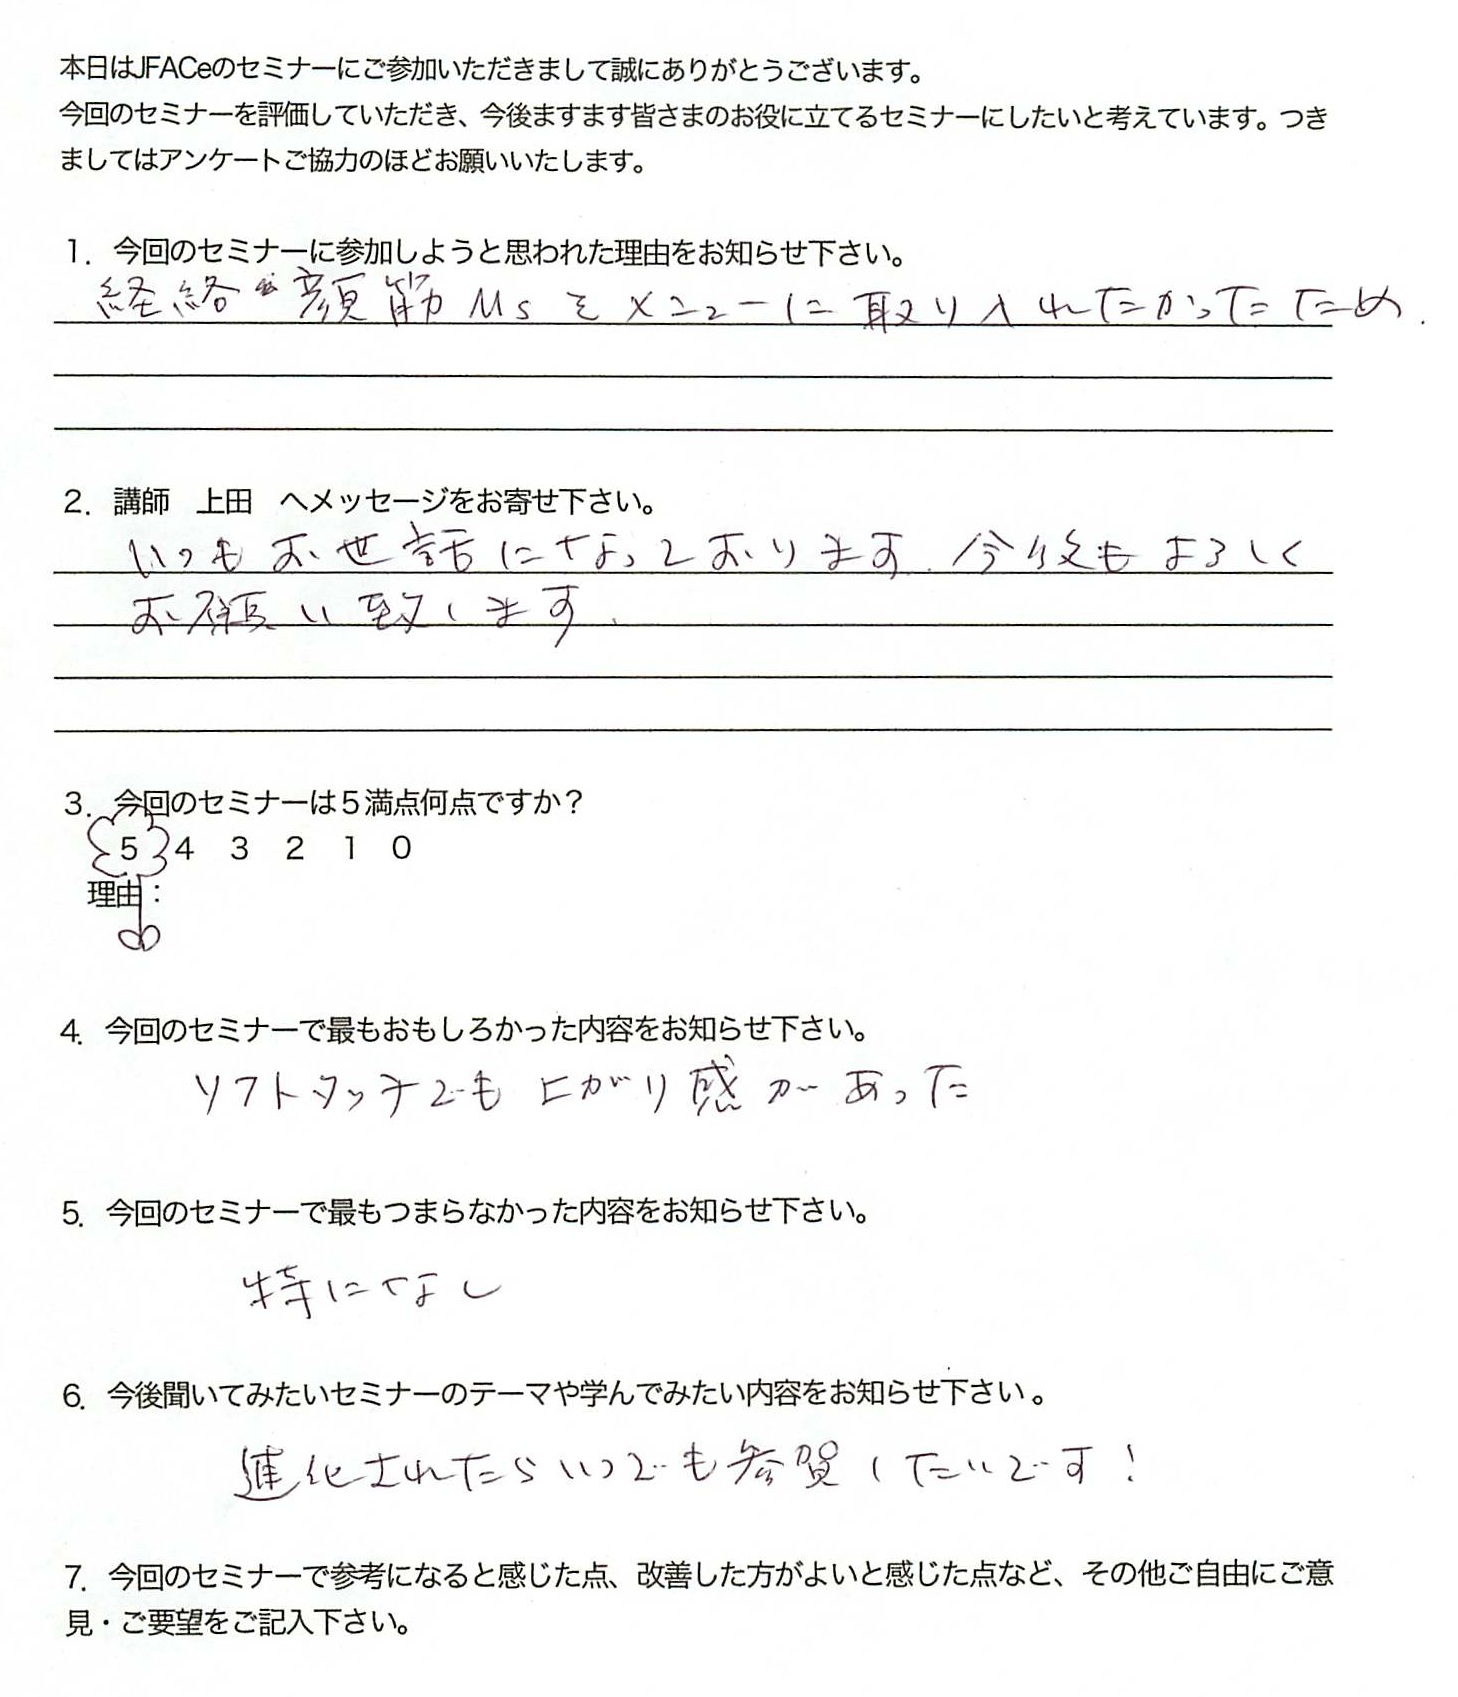 本日はJFACeのセミナーにご参加いただきまして誠にありがとうございます。
今回のセミナーを評価していただき、今後ますます皆さまのお役に立てるセミナーにしたいと考えています。つき
ましてはアンケートご協力のほどお願いいたします。
1. 今回のセミナーに参加しようと思われた理由をお知らせ下さい。
経絡 顔筋 Msをメニューに取り入れたかったため.
2. 講師 上田 へメッセージをお寄せ下さい。
いつもお世話になっております.今後もよろしく
お願い致します.
3. 今回のセミナーは5満点何点ですか?
5 4 3 2 1 0
理由:
4. 今回のセミナーで最もおもしろかった内容をお知らせ下さい。
ソフトタッチでも上がり感があった
5. 今回のセミナーで最もつまらなかった内容をお知らせ下さい。
特になし
6. 今後聞いてみたいセミナーのテーマや学んでみたい内容をお知らせ下さい。
進化されたらいつでも参賀したいです!
7. 今回のセミナーで参考になると感じた点、改善した方がよいと感じた点など、その他ご自由にご意
見・ご要望をご記入下さい。